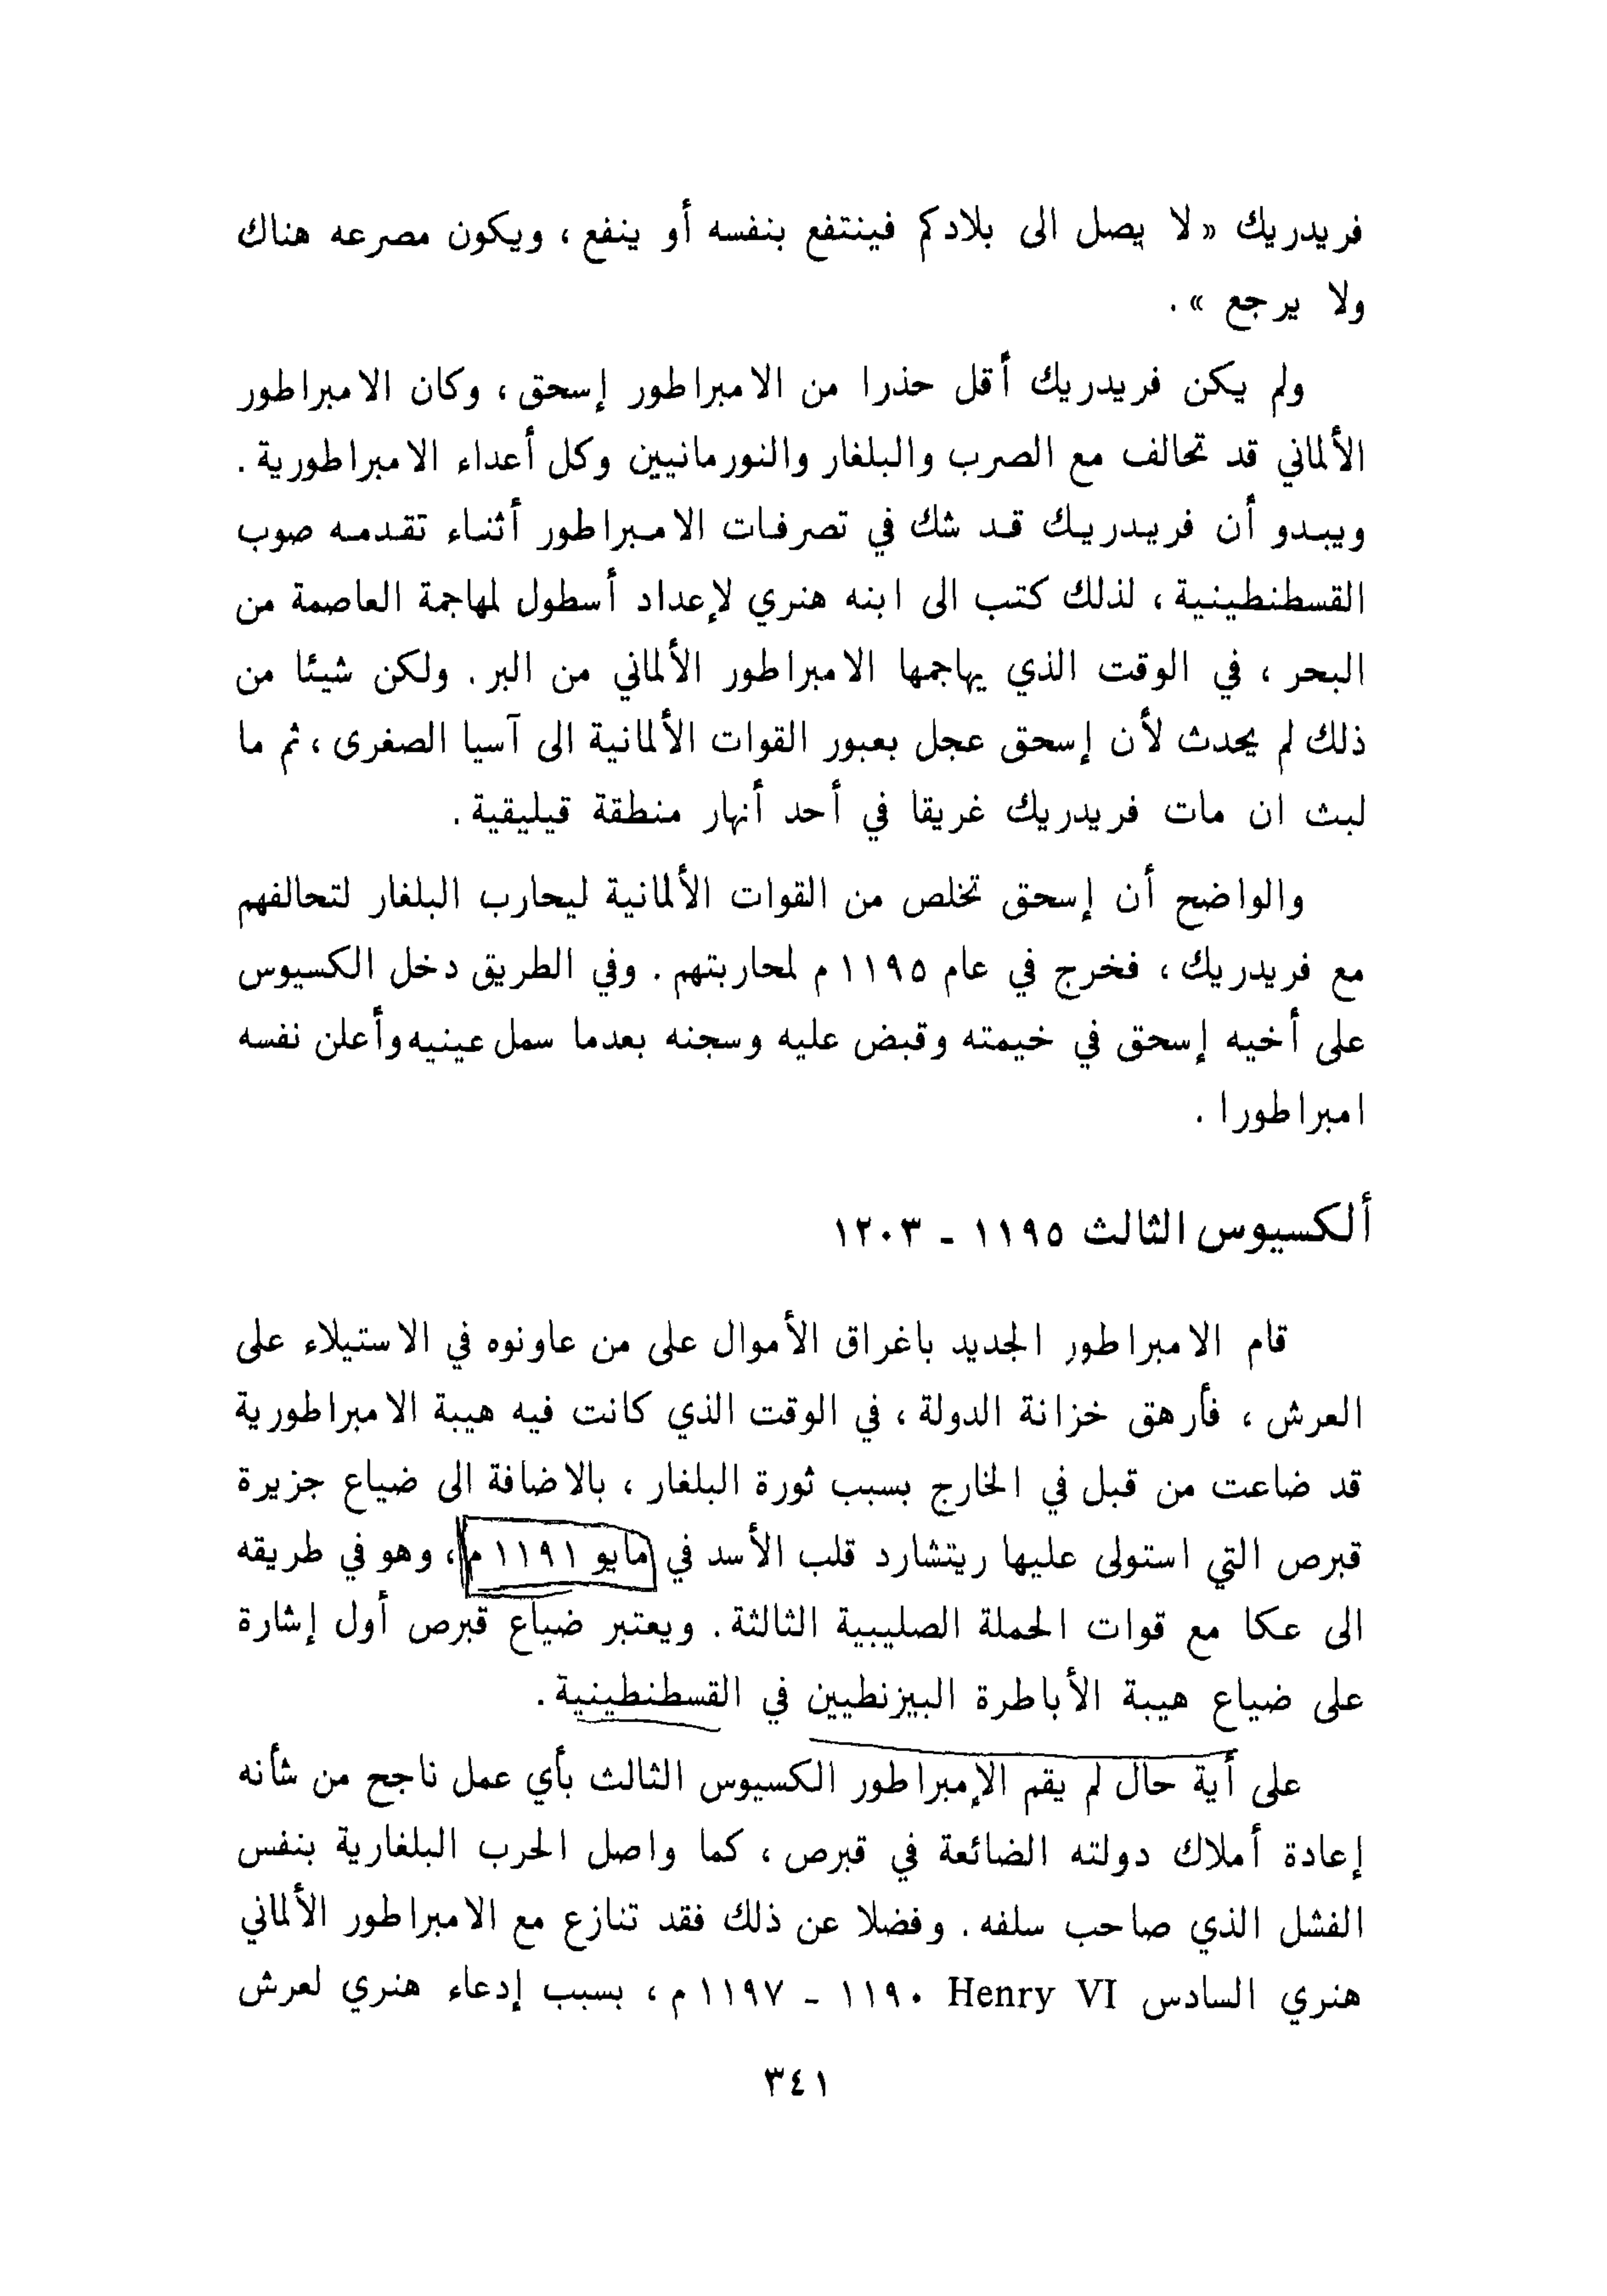 فريدريك «لا يصل الى بلادكم فينتفع بنفسه أو ينفع ، ويكون مصرعه هناك
ولا يرجع » .
ولم يكن فريدريك أقل حذرا من الامبراطور إسحق ، وكان الامبراطور
الألماني قد تحالف مع الصرب والبلغار والنورمانيين وكل أعداء الامبراطورية .
ويبدو أن فريدريك قد شك في تصرفات الامبراطور أثناء تقدمه صوب
القسطنطينية ، لذلك كتب الى ابنه هنري لإعداد أسطول لمهاجمة العاصمة من
البحر ، في الوقت الذي يهاجمها الامبراطور الألماني من البر . ولكن شيئا من
ذلك لم يحدث لأن إسحق عجل بعبور القوات الألمانية الى آسيا الصغرى ، ثم ما
لبث ان مات فريدريك غريقا في أحد أنهار منطقة قيليقية .
والواضح أن إسحق تخلص من القوات الألمانية ليحارب البلغار لتحالفهم
مع فريدريك ، فخرج في عام ١١٩٥ م لمحاربتهم . وفي الطريق دخل الكسيوس
على أخيه إسحق في خيمته وقبض عليه وسجنه بعدما سمل عينيه وأعلن نفسه
امبراطورا .
ألكسيوس الثالث ١١٩٥ - ١٢٠٣
قام الامبراطور الجديد باغراق الأموال على من عاونوه في الاستيلاء على
العرش ، فأرهق خزانة الدولة ، في الوقت الذي كانت فيه هيبة الامبراطورية
قد ضاعت من قبل في الخارج بسبب ثورة البلغار ، بالاضافة الى ضياع جزيرة
قبرص التي استولى عليها ريتشارد قلب الأسد في مايو ١١٩١ م ، وهو في طريقه
الى عكا مع قوات الحملة الصليبية الثالثة . ويعتبر ضياع قبرص أول إشارة
على ضياع هيبة الأباطرة البيزنطيين في القسطنطينية .
على أية حال لم يقم الإمبراطور الكسيوس الثالث بأي عمل ناجح من شأنه
إعادة أملاك دولته الضائعة في قبرص ، كما واصل الحرب البلغارية بنفس
الفشل الذي صاحب سلفه . وفضلا عن ذلك فقد تنازع مع الامبراطور الألماني
هنري السادس Henry VI ١١٩٠ - ١١٩٧ م ، بسبب إدعاء هنري لعرش
٣٤١